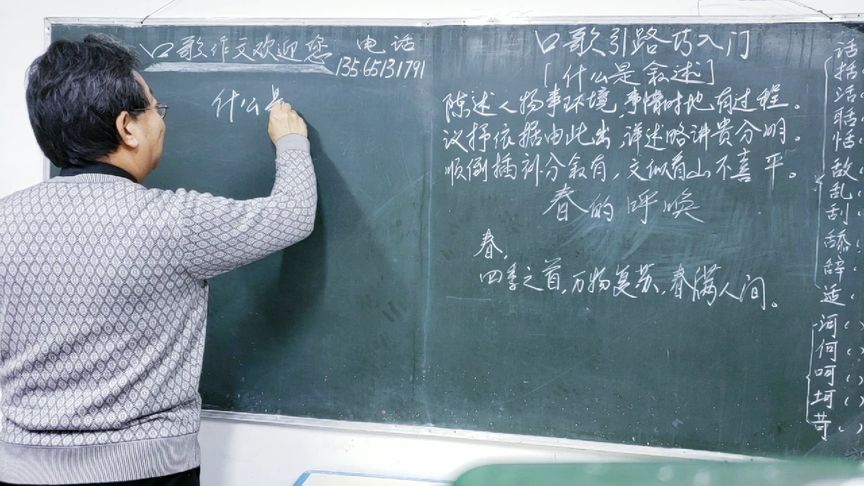 口歌作文欢迎您 电话
13565131791
什么是
口歌引路巧入门
[什么是叙述]
陈述人物事环境，事情时地有过程。
议抒依据由此出，详述略讲贵分明。
顺倒插补分叙有，文似看山不喜平。
春的呼唤
春，
四季之首，万物复苏，春满人间。
话
括
活
聒
恬
敌
乱
刮
舔
辞
适
河( )
何( )
呵( )
坷( )
苛( )